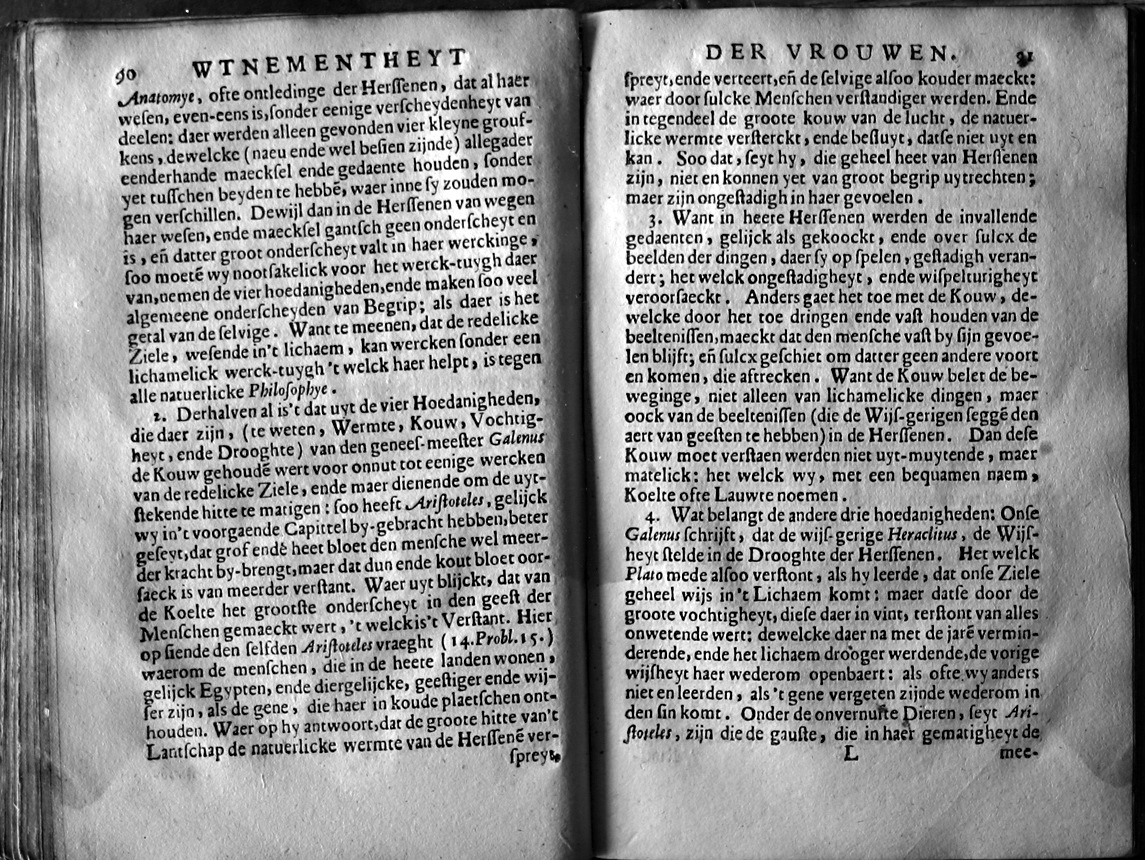 90 WTNEMENTHEYT
Anatomye, ofte ontledinge der Herſſenen, dat al haer
weſen, even-eens is, ſonder eenige verſcheydenheyt van
deelen: daer werden alleen gevonden vier kleyne grouf-
kens, dewelcke (naeu ende wel beſien zijnde) allegader
eenderhande maeckſel ende gedaente houden, ſonder
yet tuſſchen beyden te hebbē, waer inne ſy zouden mo-
gen verſchillen. Dewijl dan in de Herſſenen van wegen
haer weſen, ende maeckſel gantſch geen onderſcheyt en
is, eñ datter groot onderſcheyt valt in haer werckinge,
ſoo moetē wy nootſakelick voor het werck-tuygh daer
van, nemen de vier hoedanigheden, ende maken ſoo veel
algemeene onderſcheyden van Begrip; als daer is het
getal van de ſelvige. Want te meenen, dat de redelicke
Ziele, weſende in't lichaem, kan wercken ſonder een
lichamelick werck-tuygh 't welck haer helpt, is tegen
alle natuerlicke Philoſophye.
2. Derhalven al is't dat uyt de vier Hoedanigheden,
die daer zijn, (te weten, Wermte, Kouw, Vochtig-
heyt, ende Drooghte) van den geneeſ-meeſter Galenus
de Kouw gehoudē wert voor onnut tot eenige wercken
van de redelicke Ziele, ende maer dienende om de uyt-
ſtekende hitte te matigen: ſoo heeft Ariſtoteles, gelijck
wy in't voorgaende Capittel by-gebracht hebben, beter
geſeyt, dat grof endē heet bloet den menſche wel meer-
der kracht by-brengt, maer dat dun ende kout bloet oor-
ſaeck is van meerder verſtant. Waer uyt blijckt, dat van
de Koelte het grootſte onderſcheyt in den geeſt der
Menſchen gemaeckt wert, 't welck is't Verſtant. Hier
op ſiende den ſelfden Ariſtoteles vraeght (14. Probl. 15.)
waerom de menſchen, die in de heete landen wonen,
gelijck Egypten, ende diergelijcke, geeſtiger ende wij-
ſer zijn, als de gene, die haer in koude plaetſchen ont-
houden. Waer op hy antwoort, dat de groote hitte van't
Lantſchap de natuerlicke wermte van de Herſſenē ver-
ſpreyt,
DER VROUWEN. 91
ſpreyt, ende verteert, eñ de ſelvige alſoo kouder maeckt:
waer door ſulcke Menſchen verſtandiger werden. Ende
in tegendeel de groote kouw van de lucht, de natuer-
licke wermte verſterckt, ende beſluyt, datſe niet uyt en
kan. Soo dat, ſeyt hy, die geheel heet van Herſſenen
zijn, niet en konnen yet van groot begrip uytrechten;
maer zijn ongeſtadigh in haer gevoelen.
3. Want in heete Herſſenen werden de invallende
gedaenten, gelijck als gekoockt, ende over ſulcx de
beelden der dingen, daer ſy op ſpelen, geſtadigh veran-
dert; het welck ongeſtadigheyt, ende wiſpelturigheyt
veroorſaeckt. Anders gaet het toe met de Kouw, de-
welcke door het toe dringen ende vaſt houden van de
beelteniſſen, maeckt dat den menſche vaſt by ſijn gevoe-
len blijft; eñ ſulcx geſchiet om datter geen andere voort
en komen, die aftrecken. Want de Kouw belet de be-
weginge, niet alleen van lichamelicke dingen, maer
oock van de beelteniſſen (die de Wijſ-gerigen ſeggē den
aert van geeſten te hebben) in de Herſſenen. Dan deſe
Kouw moet verſtaen werden niet uyt-muytende, maer
matelick: het welck wy, met een bequamen naem,
Koelte ofte Lauwte noemen.
4. Wat belangt de andere drie hoedanigheden: Onſe
Galenus ſchrijft, dat de wijſ-gerige Heraclitus, de Wijſ-
heyt ſtelde in de Drooghte der Herſſenen. Het welck
Plato mede alſoo verſtont, als hy leerde, dat onſe Ziele
geheel wijs in't Lichaem komt: maer datſe door de
groote vochtigheyt, dieſe daer in vint, terſtont van alles
onwetende wert: dewelcke daer na met de jarē vermin-
derende, ende het lichaem drooger werdende, de vorige
wijſheyt haer wederom openbaert: als ofte wy anders
niet en leerden, als 't gene vergeten zijnde wederom in
den ſin komt. Onder de onvernufte Dieren, ſeyt Ari-
ſtoteles, zijn die de gauſte, die in haer gematigheyt de
L mee-